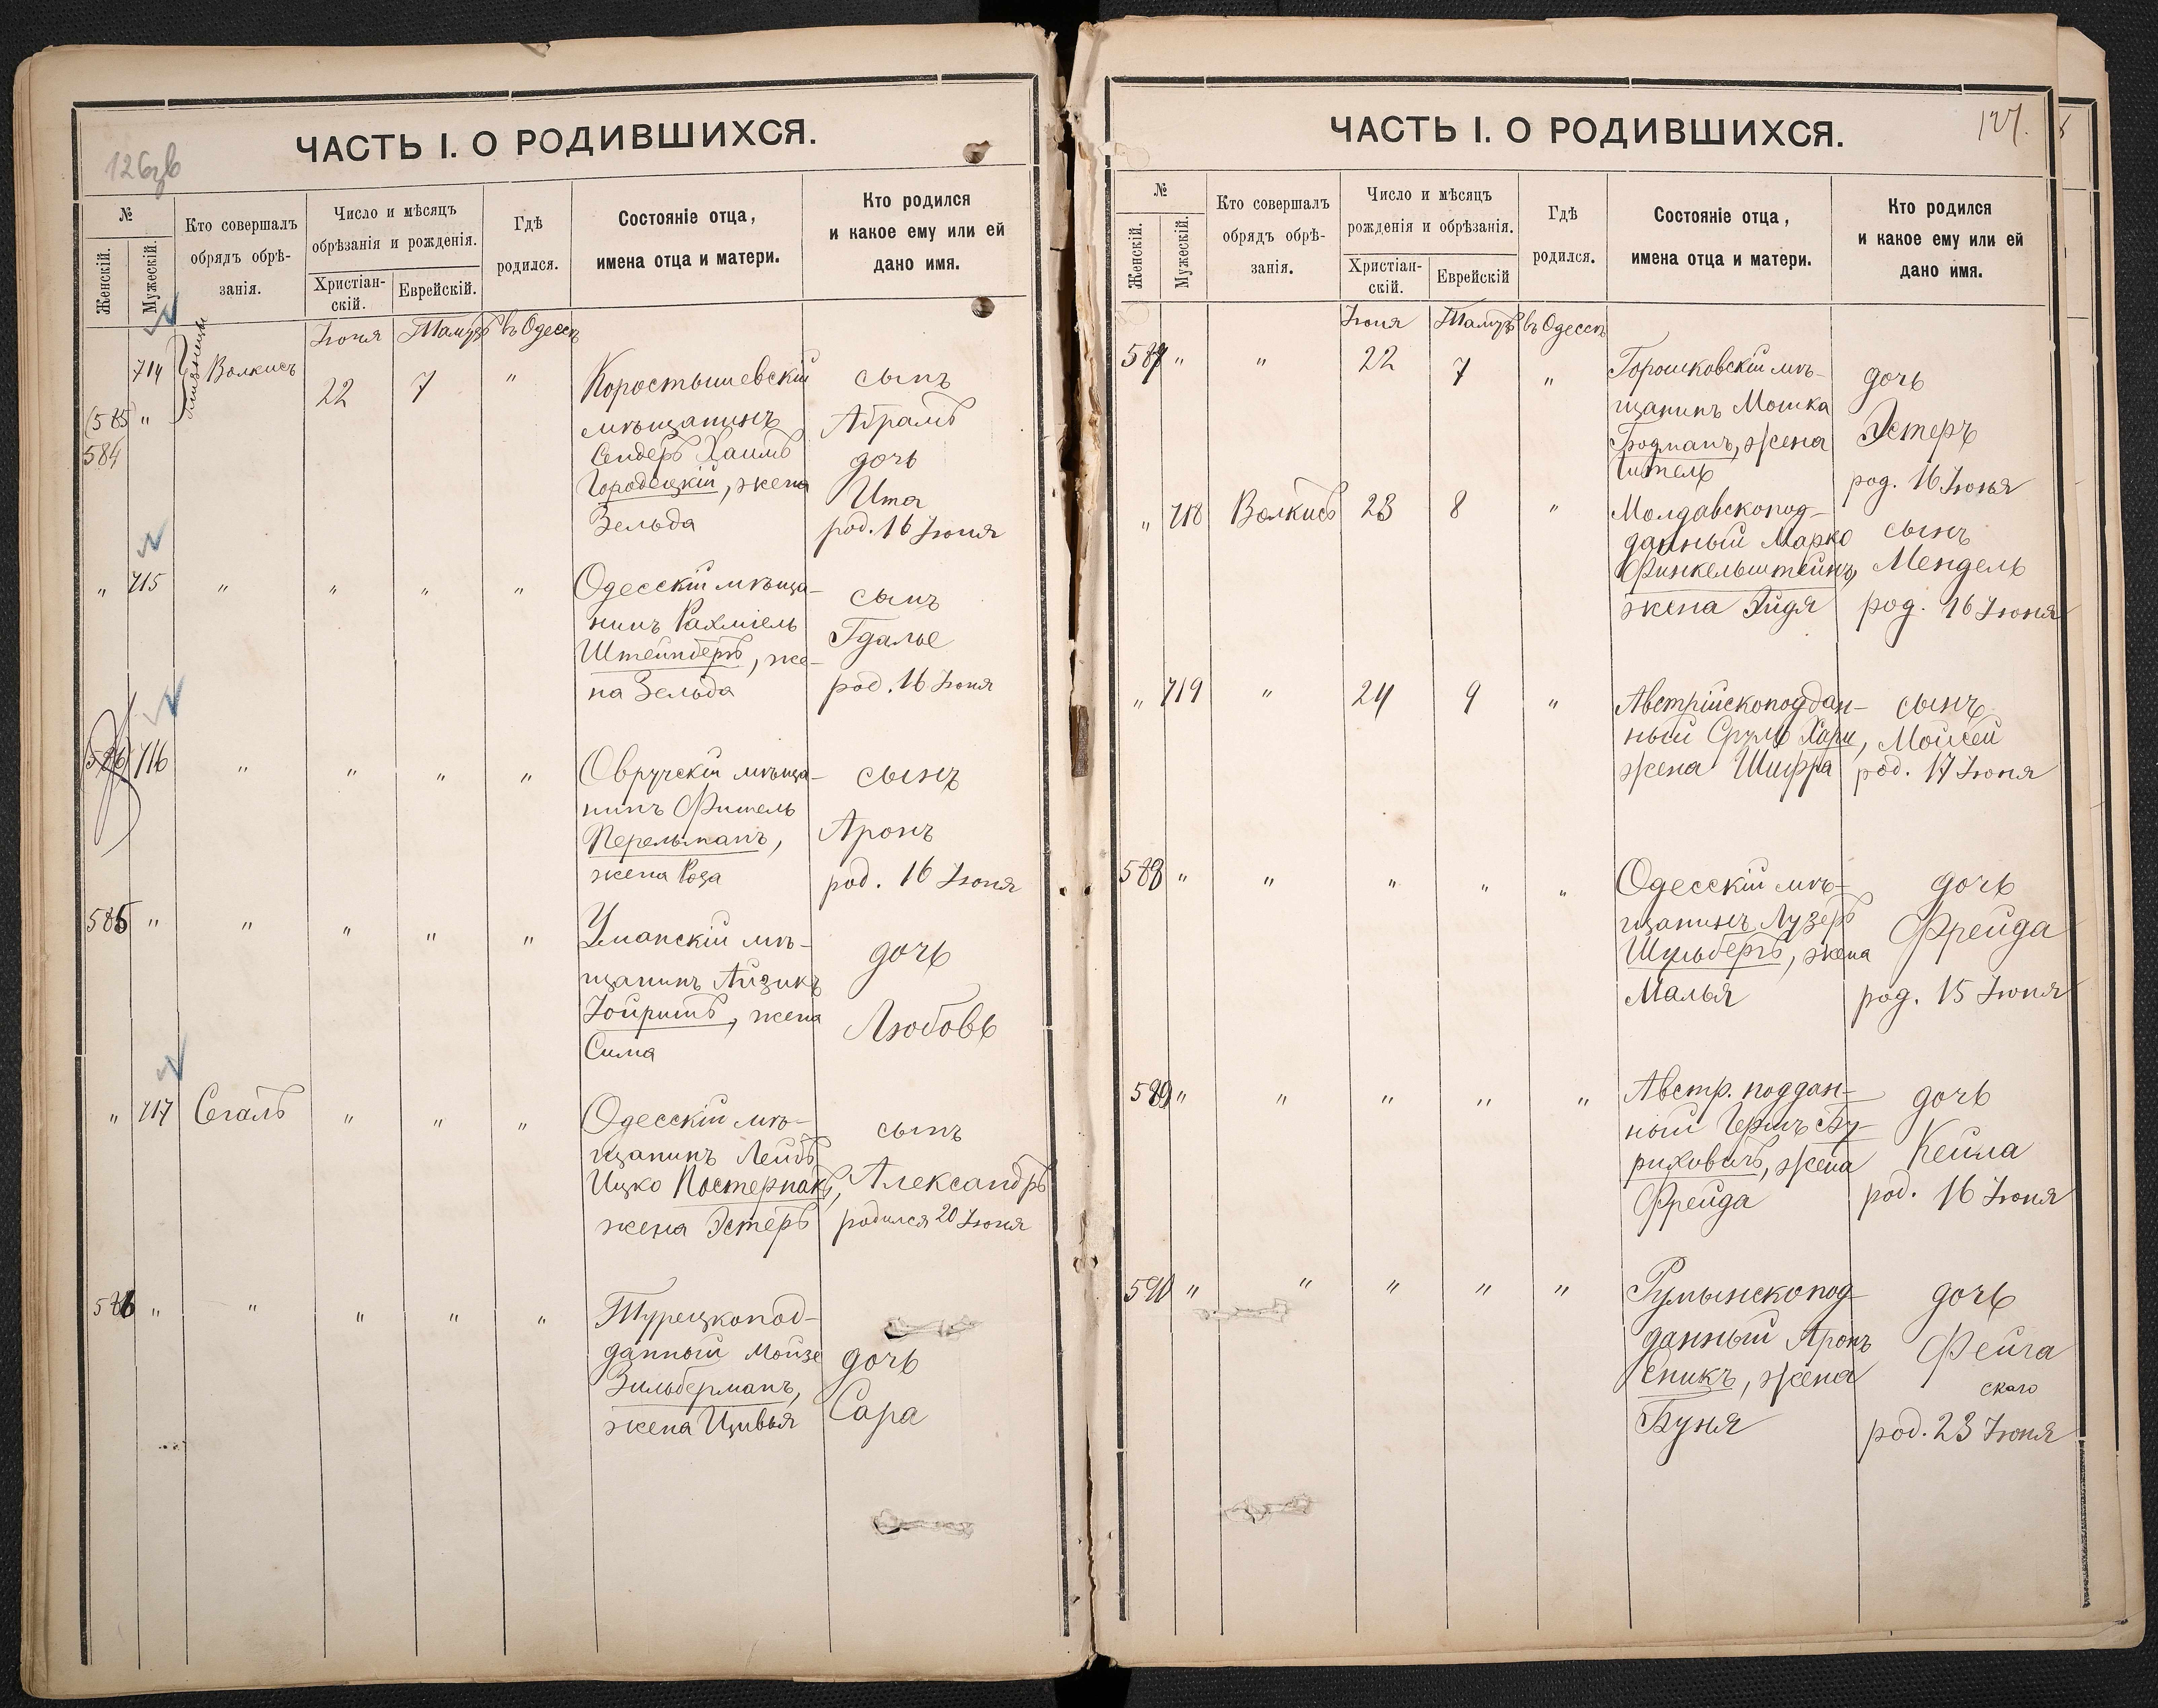 ЧАСТЬ I. О РОДИВШИХСЯ.
126об
№
Женскій.
Мужескій.
Кто совершалъ
обрядъ обрѣ-
занія.
Число и мѣсяцъ
обрѣзанія и рожденія.
Христіан-
скій.
Еврейскій.
Гдѣ
родился.
Состояніе отца,
имена отца и матери.
Кто родился
и какое ему или ей
дано имя.
Іюня Тамузъ въ Одессѣ
714 близнецы Волкисъ 22 7 "
(585) "
584
Коростышевскій
мѣщанинъ
Сендеръ Хаимъ
Городецкій, жена
Зельда
сынъ
Абрамъ
дочь
Ита
род. 16 Іюня
" 715 " " " "
Одесскій мѣща-
нинъ Рахміель
Штейнбергъ, же-
на Зельда
сынъ
Гдалье
род. 16 Іюня
(586) 716 " " " "
Овручскій мѣща-
нинъ Фишель
Перельманъ,
жена Роза
сынъ
Аронъ
род. 16 Іюня
585 " " " " "
Уманскій мѣ-
щанинъ Айзикъ
Іойришъ, жена
Сима
дочь
Любовь
" 717 Сегалъ " " "
Одесскій мѣ-
щанинъ Лейбъ
Ицко Постернакъ,
жена Эстеръ
сынъ
Александръ
родился 20 Іюня
586 " " " " "
Турецкопод-
данный Мойзе
Зильберманъ,
жена Цивья
дочь
Сара
ЧАСТЬ I. О РОДИВШИХСЯ.
127.
№
Женскій.
Мужескій.
Кто совершалъ
обрядъ обрѣ-
занія.
Число и мѣсяцъ
рожденія и обрѣзанія.
Христіан-
скій.
Еврейскій
Гдѣ
родился.
Состояніе отца,
имена отца и матери.
Кто родился
и какое ему или ей
дано имя.
Іюня Тамузъ въ Одессѣ
587 " " 22 7 "
Горошковскій мѣ-
щанинъ Мошка
Годманъ, жена
Гитель
дочь
Эстеръ
род. 16 Іюня
" 718 Волкисъ 23 8 "
Молдавскопод-
данный Марко
Финкельштейнъ,
жена Эйдя
сынъ
Мендель
род. 16 Іюня
" 719 " 24 9 "
Австрійскоподдан-
ный Сруль Хари,
жена Шифра
сынъ
Мойсей
род. 17 Іюня
588 " " " " "
Одесскій мѣ-
щанинъ Лузеръ
Шульбергъ, жена
Малья
дочь
Фрейда
род. 15 Іюня
589 " " " " "
Австр. поддан-
ный Гершъ Бу-
риховичъ, жена
Фрейда
дочь
Кейла
род. 16 Іюня
590 " " " " "
Румынскопод-
данный Аронъ
Спикъ, жена
Буня
дочь
Фейга
скаго
род. 23 Іюня